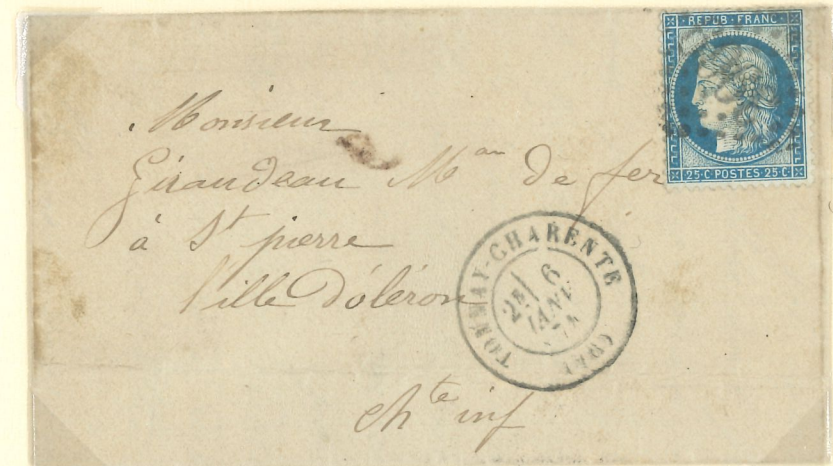 REPUB · FRANC
25 · C POSTES 25 · C
Monsieur
Giraudeau Man de fer
à St pierre
l'ille d'oléron
chte inf
TONNAY-CHARENTE
2E
6
JANV.
74